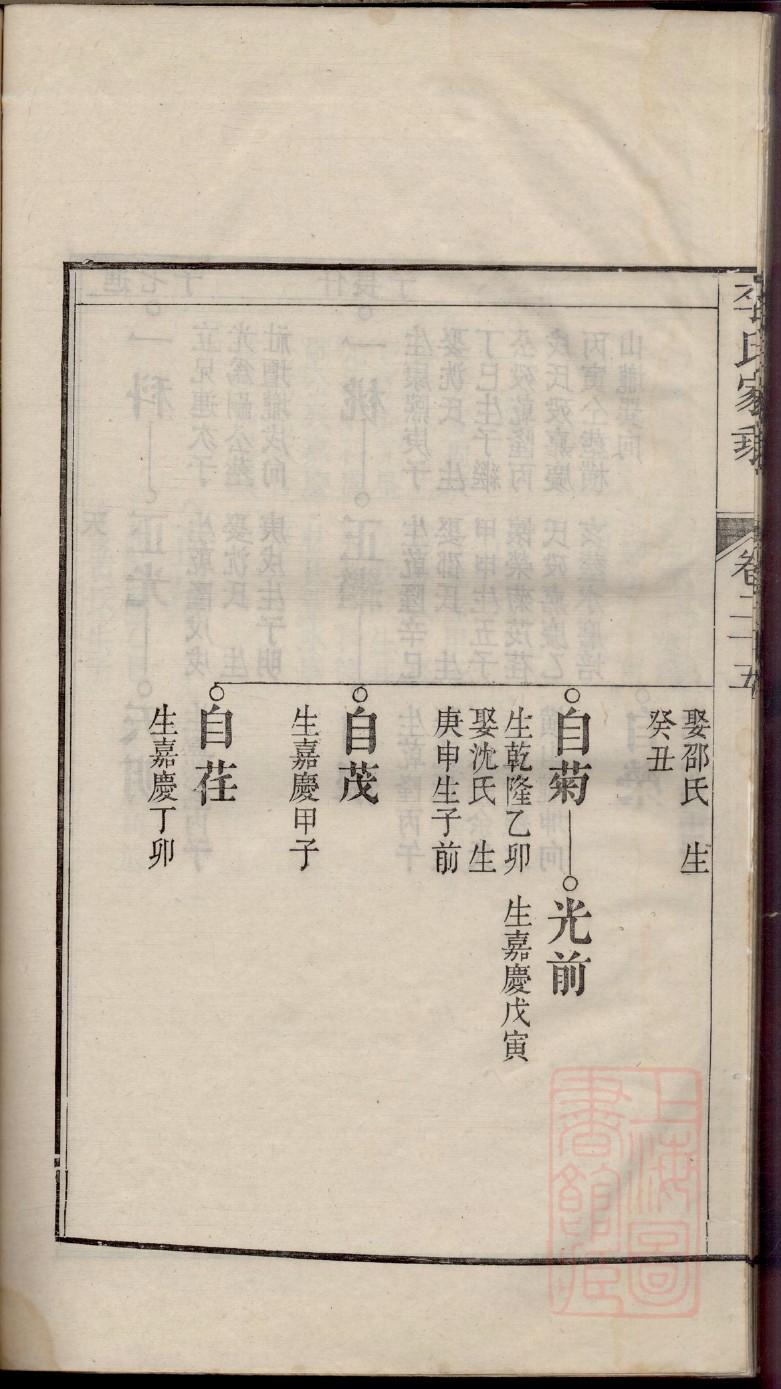 氏家乘
卷二十五
娶邵氏 生
癸丑
自菊
生乾隆乙卯
娶沈氏 生
庚申生子前
光前
生嘉慶戊寅
自茂
生嘉慶甲子
自荏
生嘉慶丁卯
上海圖
書館藏